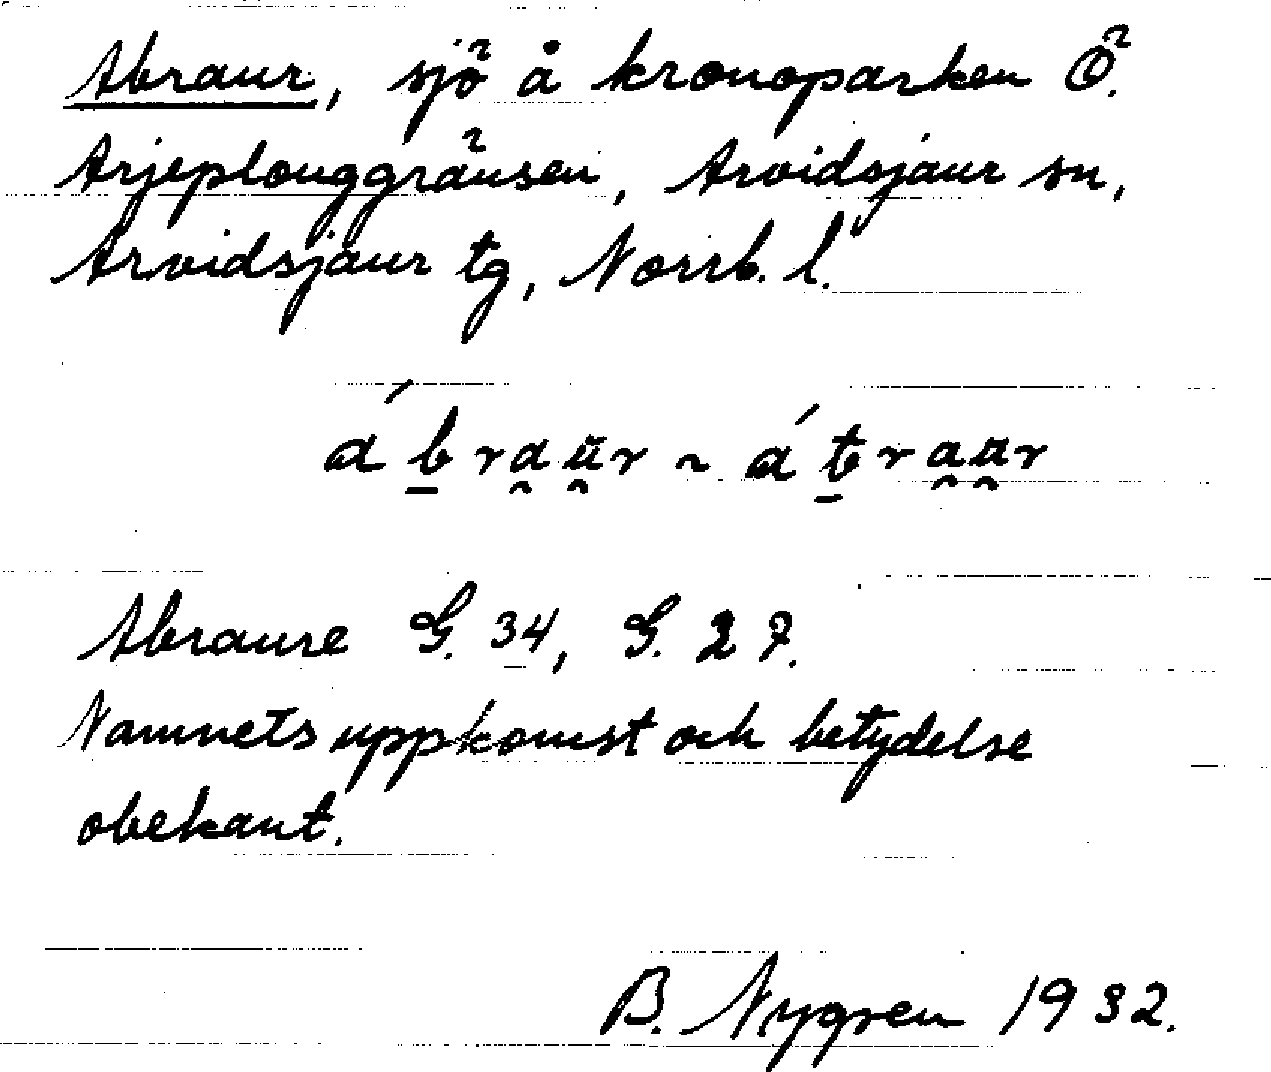 Abraur, sjö å kronoparken Ö.
Arjeplouggränsen, Arvidsjaur sn,
Arvidsjaur tg, Norrb. l.
áb̠ra̯u̯r ~ át̠ra̯u̯r
Abraure G. 34, G. 27.
Namnets uppkomst och betydelse
obekant.
B. Nygren 1932.